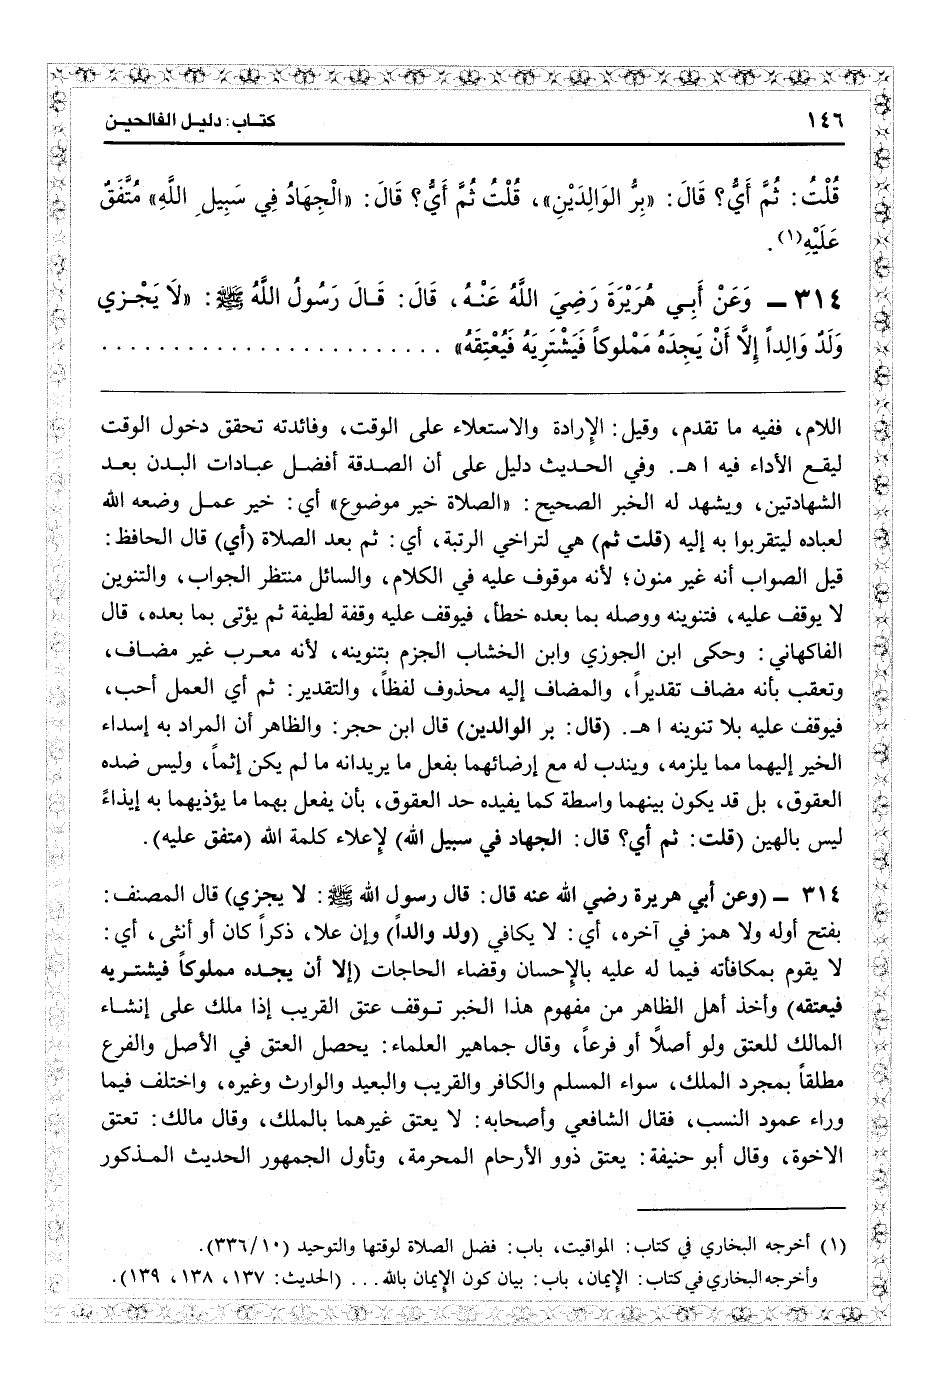 ١٤٦ كتاب: دليل الفالحين
قُلْتُ: ثُمَّ أَيُّ؟ قَالَ: «بِرُّ الوَالِدَيْنِ»، قُلْتُ ثُمَّ أَيُّ؟ قَالَ: «الْجِهَادُ فِي سَبِيلِ اللَّهِ» مُتَّفَقٌ
عَلَيْهِ(١).
٣١٤ ـ وَعَنْ أَبِي هُرَيْرَةَ رَضِيَ اللَّهُ عَنْهُ، قَالَ: قَالَ رَسُولُ اللَّهُ ﷺ: «لَا يَجْزِي
وَلَدٌ وَالِداً إِلَّا أَنْ يَجِدَهُ مَمْلوكاً فَيَشْتَرِيَهُ فَيُعْتِقَهُ» . . . . . . . . . . . . . . . . . . . . . . . .
اللام، ففيه ما تقدم، وقيل: الإرادة والاستعلاء على الوقت، وفائدته تحقق دخول الوقت
ليقع الأداء فيه ا هـ. وفي الحديث دليل على أن الصدقة أفضل عبادات البدن بعد
الشهادتين، ويشهد له الخبر الصحيح: «الصلاة خير موضوع» أي: خير عمل وضعه الله
لعباده ليتقربوا به إليه (قلت ثم) هي لتراخي الرتبة، أي: ثم بعد الصلاة (أي) قال الحافظ:
قيل الصواب أنه غير منون؛ لأنه موقوف عليه في الكلام، والسائل منتظر الجواب، والتنوين
لا يوقف عليه، فتنوينه ووصله بما بعده خطأ، فيوقف عليه وقفة لطيفة ثم يؤتى بما بعده، قال
الفاكهاني: وحكى ابن الجوزي وابن الخشاب الجزم بتنوينه، لأنه معرب غير مضاف،
وتعقب بأنه مضاف تقديراً، والمضاف إليه محذوف لفظاً، والتقدير: ثم أي العمل أحب،
فيوقف عليه بلا تنوينه ا هـ. (قال: بر الوالدين) قال ابن حجر: والظاهر أن المراد به إسداء
الخير إليهما مما يلزمه، ويندب له مع إرضائهما بفعل ما يريدانه ما لم يكن إثماً، وليس ضده
العقوق، بل قد يكون بينهما واسطة كما يفيده حد العقوق، بأن يفعل بهما ما يؤذيهما به إيذاءً
ليس بالهين (قلت: ثم أي؟ قال: الجهاد في سبيل الله) لإعلاء كلمة الله (متفق عليه).
٣١٤ ـ (وعن أبي هريرة رضي الله عنه قال: قال رسول الله ﷺ: لا يجزي) قال المصنف:
بفتح أوله ولا همز في آخره، أي: لا يكافي (ولد والداً) وإن علا، ذكراً كان أو أنثى، أي:
لا يقوم بمكافأته فيما له عليه بالإحسان وقضاء الحاجات (إلا أن يجده مملوكاً فيشتريه
فيعتقه) وأخذ أهل الظاهر من مفهوم هذا الخبر توقف عتق القريب إذا ملك على إنشاء
المالك للعتق ولو أصلاً أو فرعاً، وقال جماهير العلماء: يحصل العتق في الأصل والفرع
مطلقاً بمجرد الملك، سواء المسلم والكافر والقريب والبعيد والوارث وغيره، واختلف فيما
وراء عمود النسب، فقال الشافعي وأصحابه: لا يعتق غيرهما بالملك، وقال مالك: تعتق
الاخوة، وقال أبو حنيفة: يعتق ذوو الأرحام المحرمة، وتأول الجمهور الحديث المذكور
(١) أخرجه البخاري في كتاب: المواقيت، باب: فضل الصلاة لوقتها والتوحيد (٣٣٦/١٠).
وأخرجه البخاري في كتاب: الإيمان، باب: بيان كون الإيمان بالله... (الحديث: ١٣٧، ١٣٨، ١٣٩).